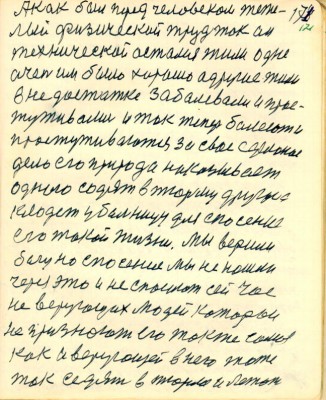 А как был пред человеком тяже-
лый физический труд ток ли
технической осталя жили одне
а чеи им было хорошо а другие жили
в недостатке заболевали и прос-
тутивали и ток тепер болеют и
простутиваются за свое
дело его природа наковывает
одного содят в тюрму другое
кладет у больницу для спосение
его такой жизни. Мы верили
богу но спосение мы не нашли
через это и не спосают сей час
не верующих людей которыи
не признают его также само
как и верующей в него тоже
ток седят в тюрме и лежат